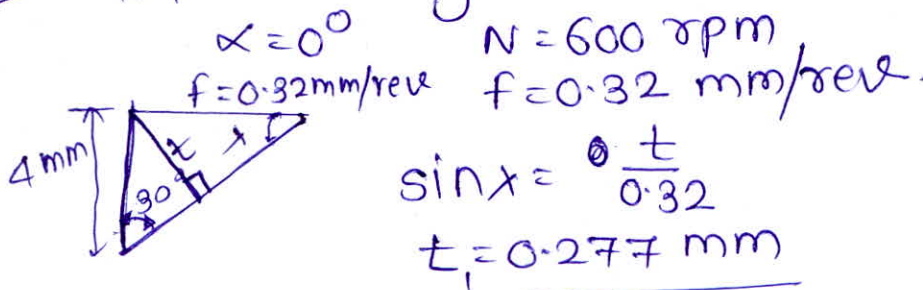 α = 0° N = 600 rpm
f = 0.32mm/rev f = 0.32 mm/rev.
4 mm t x
30°
sinx = t/0.32
t₁ = 0.277 mm